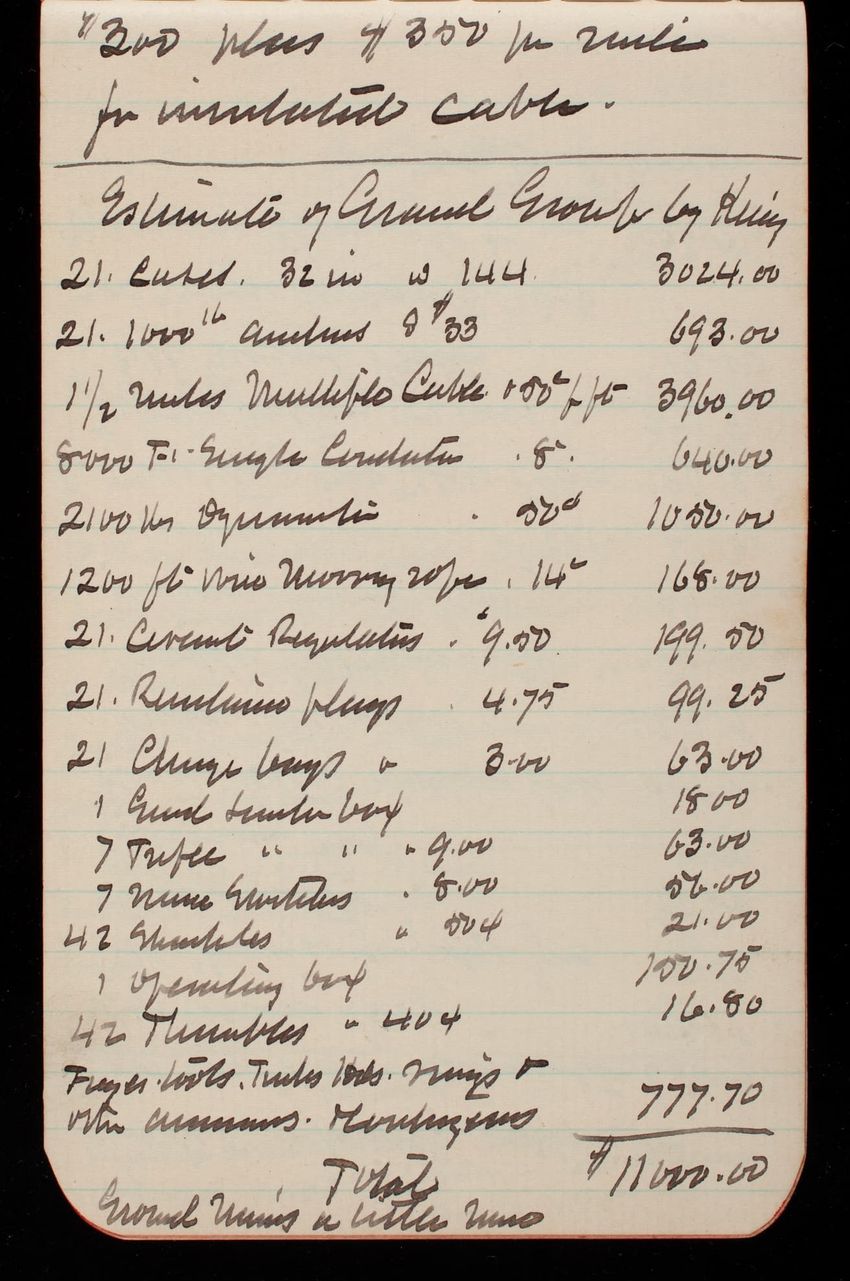 $300 plus $350 per mile
for insulated cable.
Estimate of Ground Group by King
21. Cases. 32 in @ 144 3024.00
21. 1000 lb anchors @ $33 693.00
1 1/2 miles Multiple Cable @ 50¢ p ft 3960.00
8000 Ft. Single Conductor . 8¢. 640.00
2100 lbs Dynamite . 50¢ 1050.00
1200 ft wire Mooring rope . 14¢ 168.00
21. Circuit Regulators . $9.50 199.50
21. plugs . 4.75 99.25
21 Charge bags @ 3.00 63.00
1 Grand Junction box 18 00
7 Triple " " " 9.00 63.00
7 Mine . 8.00 56.00
42 Shackles " 50¢ 21.00
1 Operating box 150.75
42 Thimbles " 40¢ 16.80
tools. rings &
other Contingencies 777.70
Total $11000.00
Ground Mines a little more